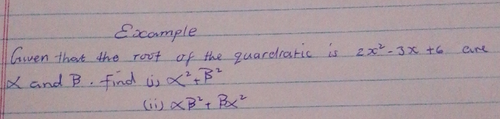 Example
Given that the root of the quardratic is 2x² - 3x + 6 are
α and β. Find (i) α² + β²
(ii) αβ² + βα²